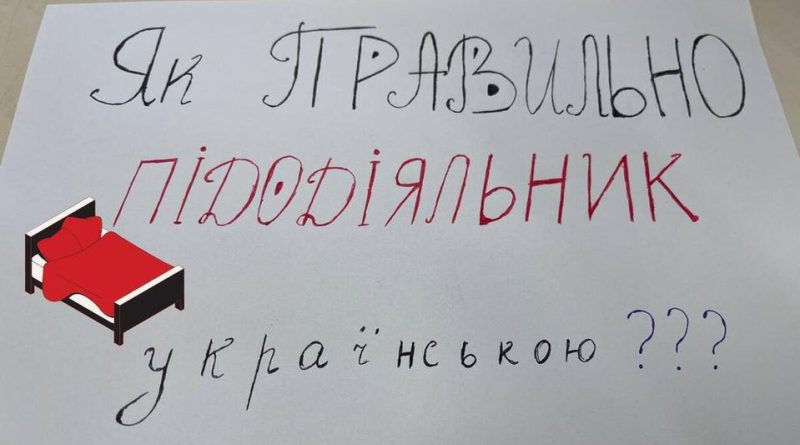 Як ПРАВИЛЬНО
ПІДОДІЯЛЬНИК
українською ???